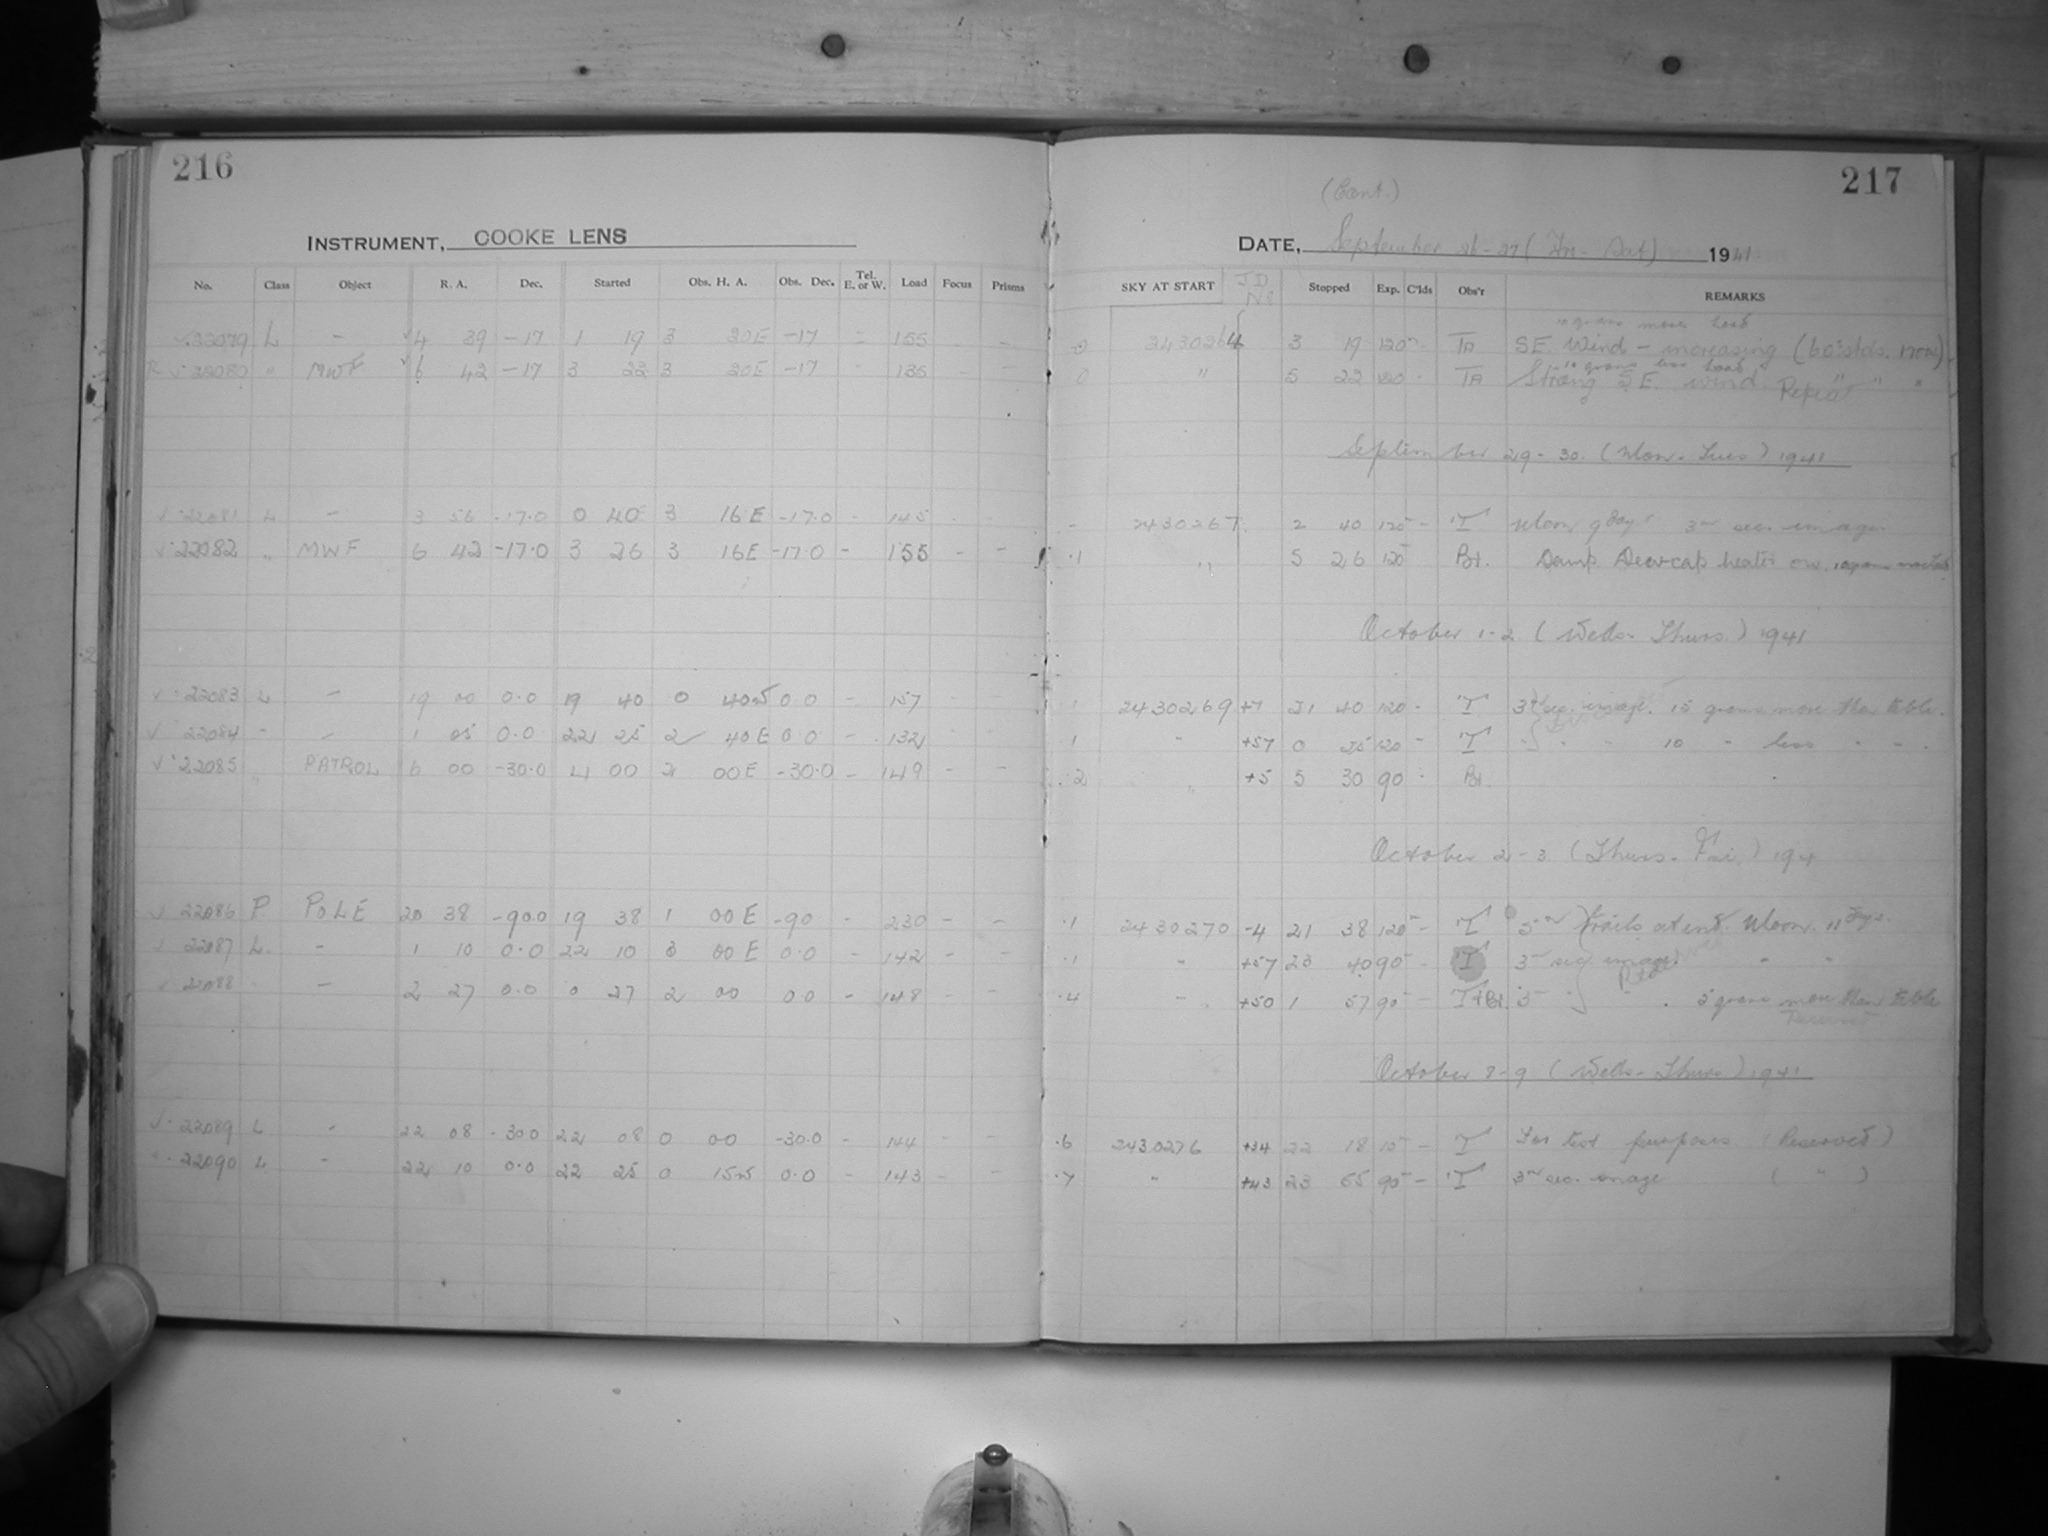 216
INSTRUMENT, COOKE LENS
No. Class Object R. A. Dec. Started Obs. H. A. Obs. Dec. Tel. E. or W. Load Focus Prisms
22079 L – 4 39 –17 1 19 3 20E –17 – 155 – –
R 22080 " MWF 6 42 –17 3 22 3 20E –17 – 135 – –
22081 L – 3 56 -17.0 0 40 3 16E -17.0 – 145 – –
22082 " MWF 6 42 -17.0 3 26 3 16E -17.0 – 155 – –
22083 L – 19 00 0.0 19 40 0 40W 0.0 – 157 – –
22084 – – 1 05 0.0 22 25 2 40E 0.0 – 132 – –
22085 " PATROL 6 00 -30.0 4 00 2 00E -30.0 – 149 – –
22086 P. POLE 20 38 -90.0 19 38 1 00E -90 – 230 – –
22087 L. – 1 10 0.0 22 10 3 00E 0.0 – 142 – –
22088 – 2 27 0.0 0 27 2 00 0.0 – 148 – –
22089 L – 22 08 -30.0 22 08 0 00 -30.0 – 144 – –
22090 L – 22 10 0.0 22 25 0 15W 0.0 – 143 – –
217
(Cont.)
DATE, September 26-27 (Fri - Sat) 1941
SKY AT START J.D. Stopped Exp. C'lds Obs'r REMARKS
10 grams more load
0 2430264 3 19 120 – TA SE. Wind – increasing (60° slds. now)
10 grams less load
0 " 5 22 120 – TA Strong S.E. wind. Repeat " "
September 29-30. (Mon - Tues) 1941
– 2430267 2 40 120 – T Moon 9 days 3rd sec. image.
.1 " 5 26 120 Bt. Damp. Dew-cap heater on.
October 1-2 (Weds - Thurs.) 1941
.1 2430269 +7 21 40 120 – T 3rd sec. image. 15 grams more than table.
.1 " +57 0 25 120 – T " " 10 " less " "
.2 " +5 5 30 90 – Bt.
October 2-3 (Thurs - Fri.) 194
.1 2430270 -4 21 38 120 – T trails at end. Moon 11 days.
.1 " +57 23 40 90 – T 3rd sec. image " "
.4 " +50 1 57 90 – T+Bt. 3 " 5 grams more than table
Reserved
October 8-9 (Weds - Thurs) 1941
.6 2430276 +34 22 18 10 – T For test purposes (Reserved)
.7 " +43 23 55 90 – T 3rd sec. image ( " )